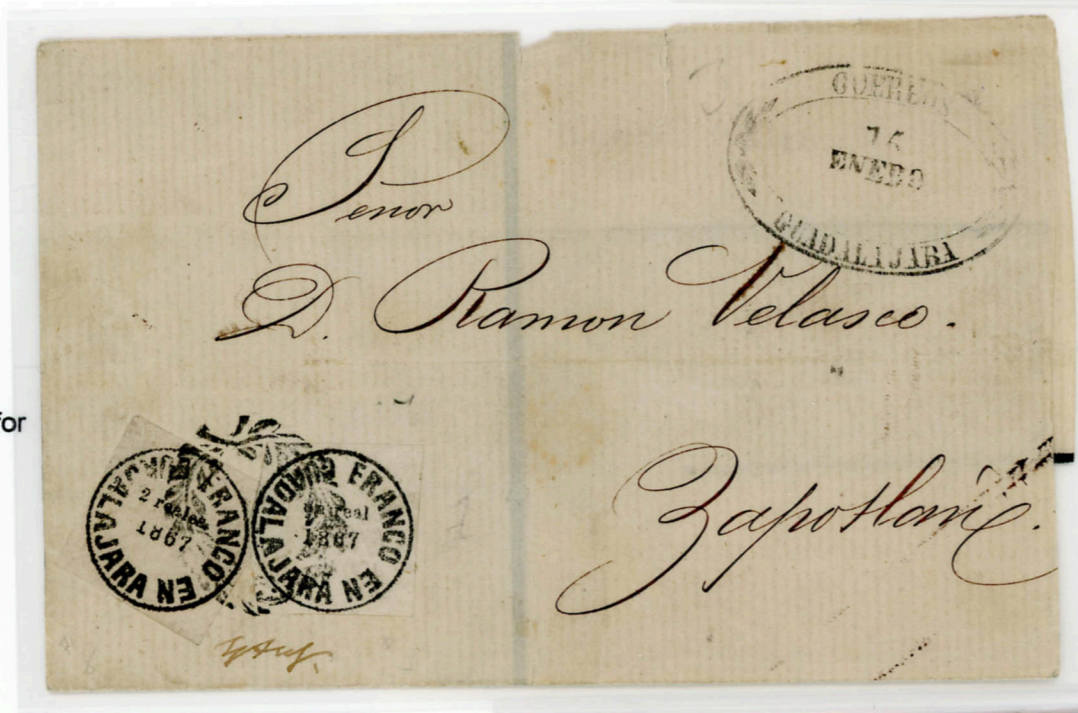 CORREOS
ENERO
GUADALAJARA
Señor
D. Ramon Velasco.
for
FRANCO EN GUADALAJARA
2 reales
1867
FRANCO EN GUADALAJARA
un real
1867
Zapotlan